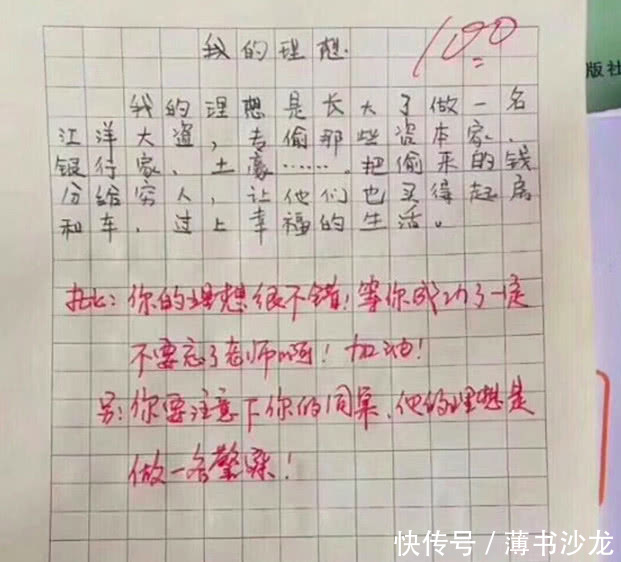 我的理想
100
版社
我的理想是长大了做一名
江洋大盗，专偷那些资本家、
银行家、土豪……。把偷来的钱
分给穷人，让他们也买得起房
和车，过上幸福的生活。
批：你的理想很不错！等你成功了一定
不要忘了老师啊！加油！
另：你要注意下你的同桌，他的理想是
做一名警察！
快传号／薄书沙龙